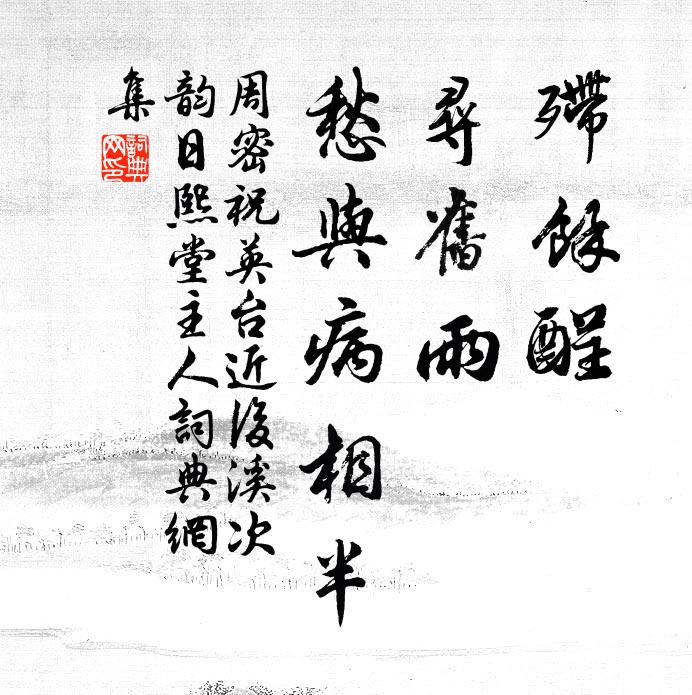 殢餘酲
尋舊雨
愁與病相半
周密祝英台近後溪次
韵日熙堂主人詞典網
集
詞典
网印